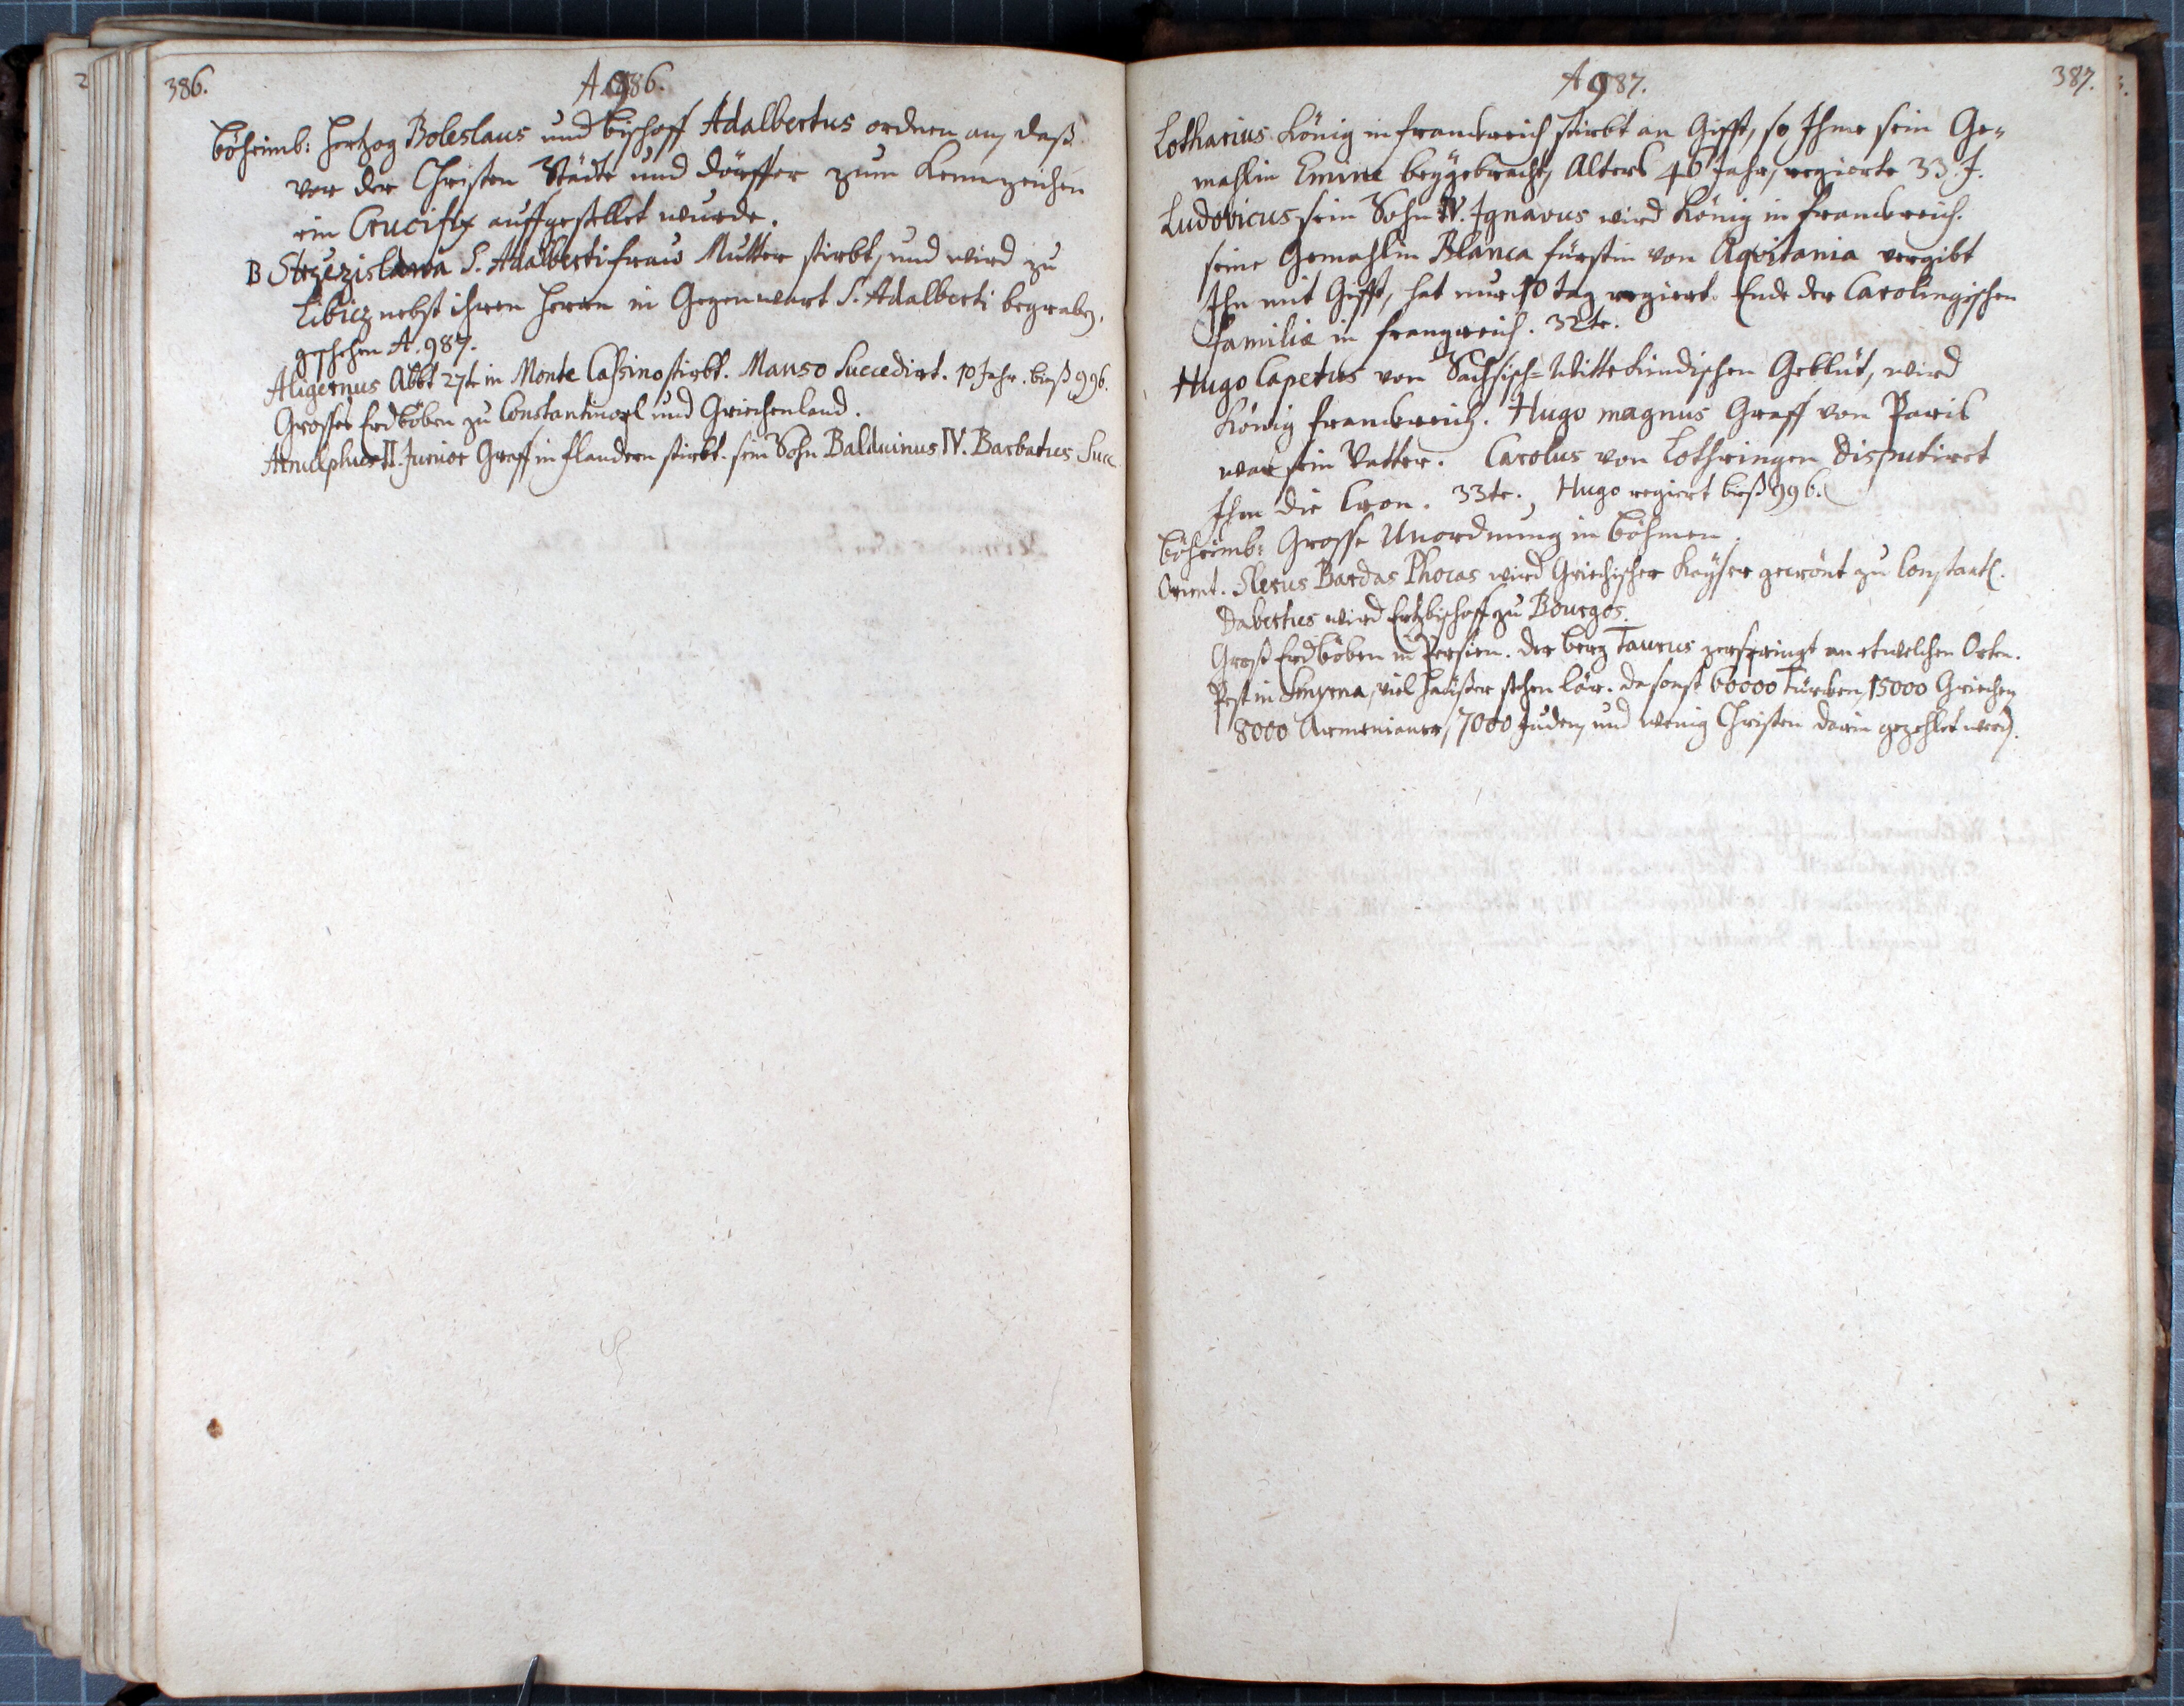 386.
A 986.
Böheimb: Hertzog Boleslaus und Bischoff Adalbertus ordnen an, daß
vor der Christen Städte und Dörffer zum Kennzeichen
ein Crucifix auffgestellet wurde.
B Strzezislawa S. Adalberti Fraw Mutter stirbt, und wird zu
Libicz nebst ihren Herrn in Gegenwart S. Adalberti begraben,
geschehen A. 987.
Aligernus Abbt 27te in Monte Cassino stirbt. Manso Succedirt. 10 Jahr. biß 996.
Grosses Erdböben zu Constantinopl und Griechenland.
Arnulphus II. Junior Graff in Flandern stirbt. sein Sohn Balduinus IV. Barbatus Succ.
A 987.
387.
Lotharius König in Franckreich stirbt an Gifft, so Ihme sein Ge-
mahlin Emine beygebracht, Alters 46 Jahr, regierte 33. J.
Ludovicus sein Sohn IV. Ignavus wird König in Franckreich.
seine Gemahlin Blanca Fürstin von Aqvitania vergibt
Ihn mit Gifft, hat nur 10 tag regiert. Ende der Carolingischen
Familiæ in Frangreich. 32te.
Hugo Capetus von Sächsisch-Wittekindischen Geblüt, wird
König Franckreich. Hugo magnus Graff von Paris
war sein Vatter. Carolus von Lothringen disputirt
Ihm die Cron. 33te. Hugo regiert biß 996.
Böheimb: Grosse Unordnung in Böhmen.
Orient. Slerus Bardas Phocas wird Griechischer Kayser gecrönt zu Constantl.
Dabertus wird Ertzbischoff zu Bourgos.
Groß Erdböben in Persien. Der berg Taurus zerspringt an etwelchen Orten.
Pest in Smyrna, viel Häußer stehen lär. da sonst 60000 Türcken, 15000 Griechen
8000 Armenianer, 7000 Juden, und wenig Christen darin gezehlet werd.